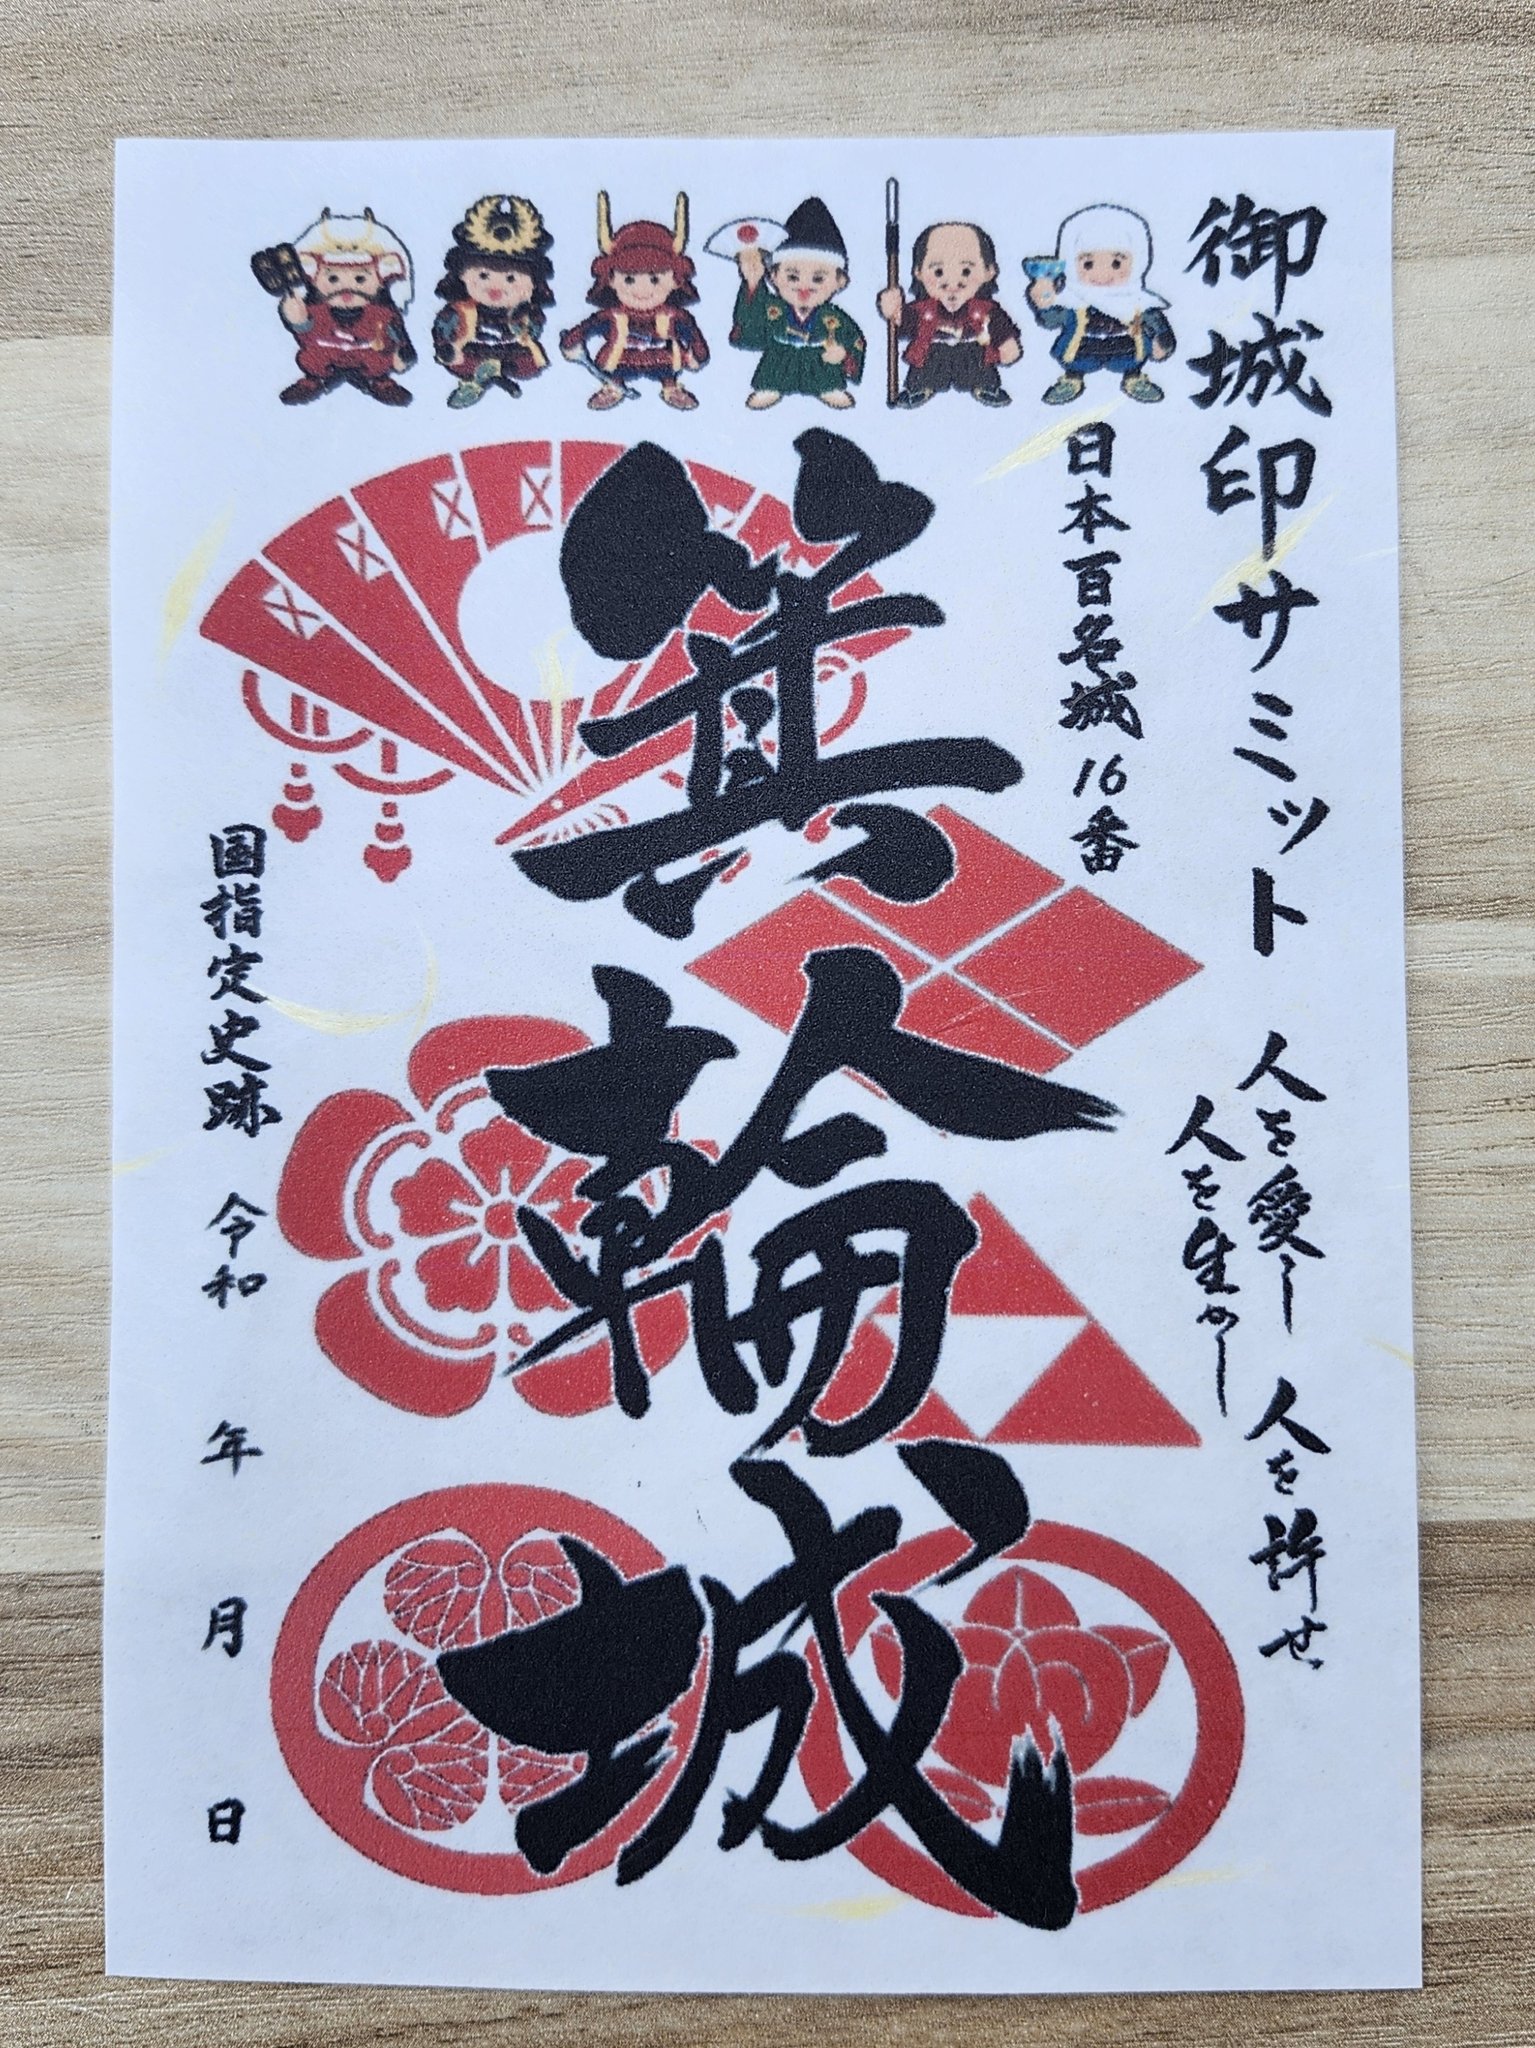 御城印サミット 人を愛し 人を許せ
人を生かし
日本百名城 16番
箕輪城
国指定史跡 令和 年 月 日